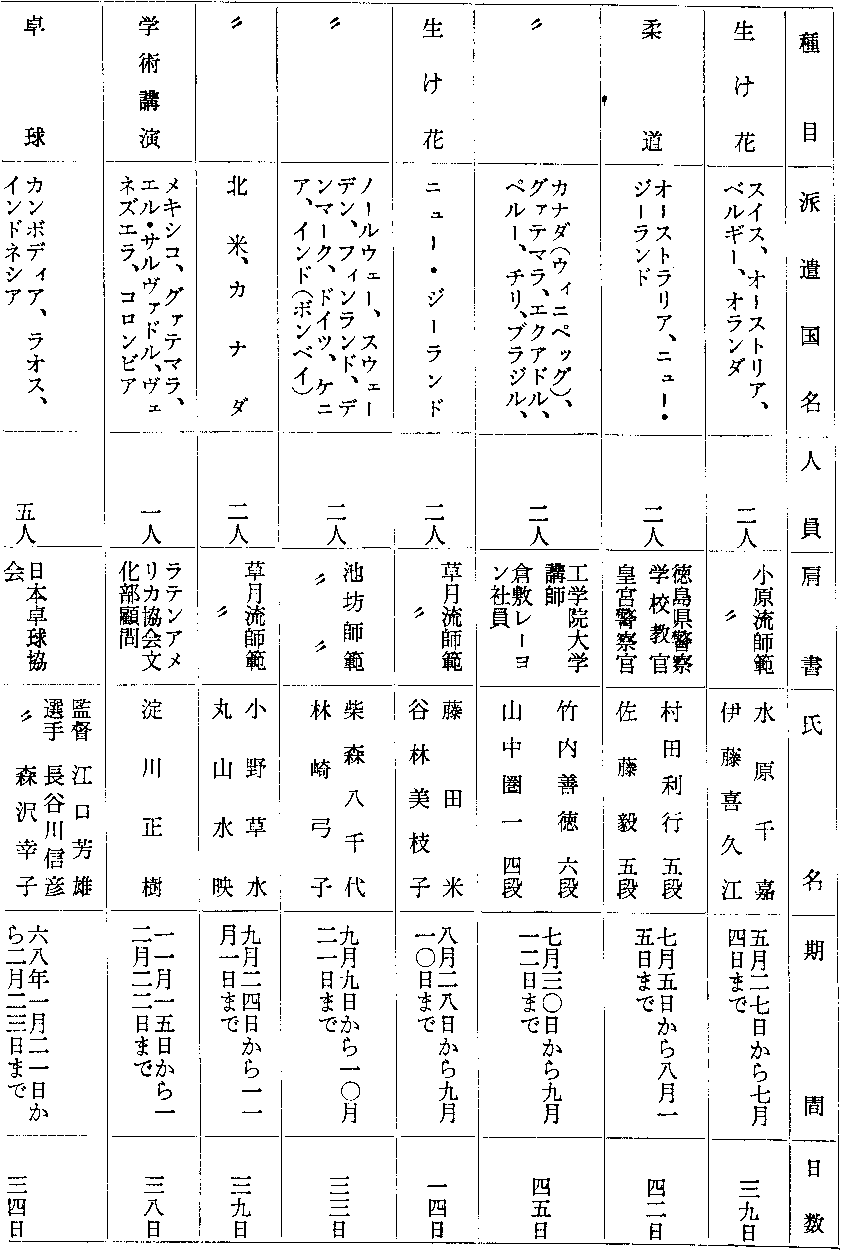 種目
派遣国名
人員
肩書
氏名
期間
日数
生け花
スイス、オーストリア、
ベルギー、オランダ
二人
小原流師範
〃
水原千嘉
伊藤喜久江
五月二七日から七月
四日まで
三九日
柔道
オーストラリア、ニュー・
ジーランド
二人
徳島県警察
学校教官
皇宮警察官
村田利行 五段
佐藤毅 五段
七月五日から八月一
五日まで
四二日
〃
カナダ(ウィニペッグ)、
グァテマラ、エクアドル、
ペルー、チリ、ブラジル、
二人
工学院大学
講師
倉敷レーヨ
ン社員
竹内善徳 六段
山中圏一 四段
七月三〇日から九月
一二日まで
四五日
生け花
ニュー・ジーランド
二人
草月流師範
〃
藤田米
谷林美枝子
八月二八日から九月
一〇日まで
一四日
〃
ノールウェー、スウェー
デン、フィンランド、デ
ンマーク、ドイツ、ケニ
ア、インド(ボンベイ)
二人
池坊師範
〃 〃
柴森八千代
林崎弓子
九月九日から一〇月
二一日まで
三三日
〃
北米、カナダ
二人
草月流師範
〃
小野草水
丸山水映
九月二四日から一一
月一日まで
三九日
学術講演
メキシコ、グァテマラ、
エル・サルヴァドル、ヴェ
ネズエラ、コロンビア
一人
ラテンアメ
リカ協会文
化部顧問
淀川正樹
一一月一五日から一
二月二二日まで
三八日
卓球
カンボディア、ラオス、
インドネシア
五人
日本卓球協
会
監督 江口芳雄
選手 長谷川信彦
〃 森沢幸子
六八年一月二一日か
ら二月二三日まで
三四日